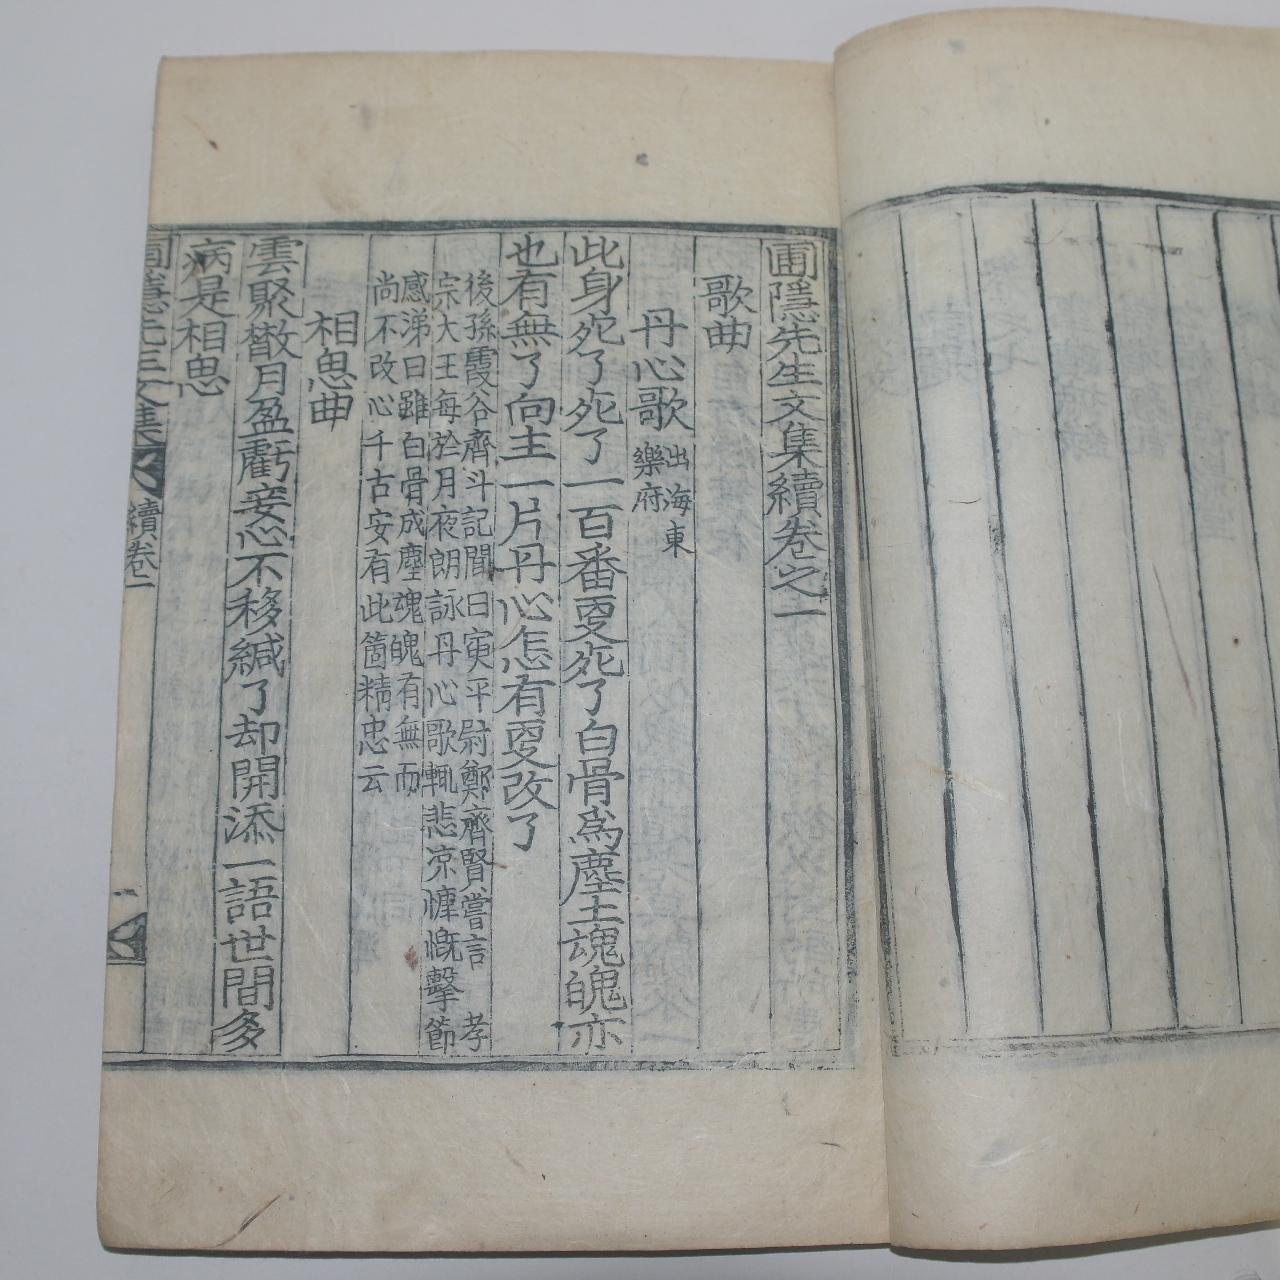 圃隱先生文集續卷之一
歌曲
丹心歌 出海東樂府
此身死了死了一百番更死了白骨爲塵土魂魄亦
也有無了向主一片丹心怎有更改了
後孫霞谷齊斗記聞曰寅平尉鄭齊賢嘗言 孝
宗大王每於月夜朗詠丹心歌輒悲凉慷慨擊節
感涕曰雖白骨成塵魂魄有無而
尚不改心千古安有此箇精忠云
相思曲
雲聚散月盈虧妾心不移緘了却開添一語世間多
病是相思
圃隱先生文集 續卷一